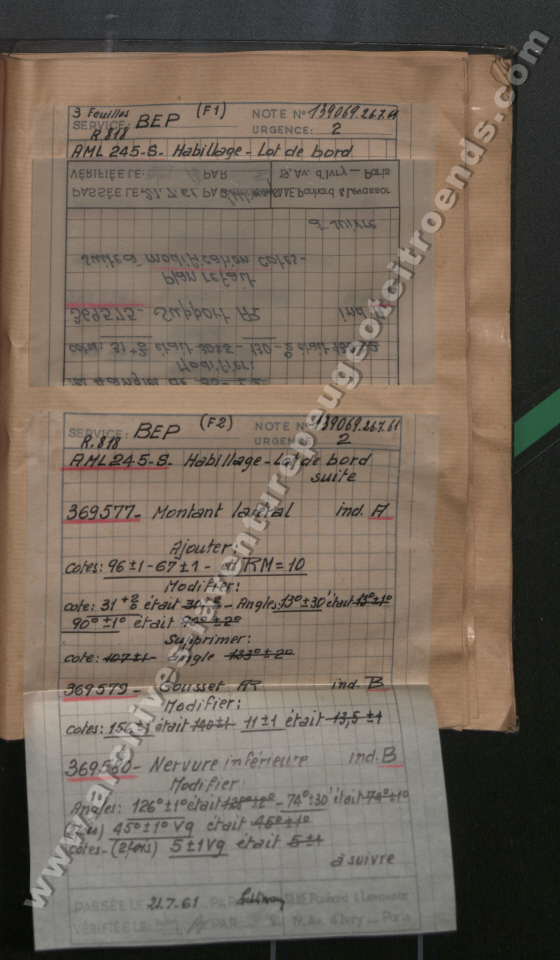 3 Feuilles
SERVICE: BEP (F1) NOTE N° 139069.26.7.61
R.818 URGENCE: 2
AML 245-S- Habillage - Lot de bord
VÉRIFIÉE LE: PAR 19, Av. d'Ivry — Paris
PASSÉE LE 21.7.61 PAR S.A.E Panhard & Levassor
à suivre
suite à modification cotes-
Plan refait
369575- Support AR ind.
Modifier:
SERVICE: BEP (F2) NOTE N° 139069.26.7.61
R.818 URGENCE: 2
AML 245-S- Habillage - Lot de bord
suite
369577- Montant latéral ind. A
Ajouter:
cotes: 96±1-67±1- RM=10
Modifier:
cote: 31 était - Angles: 13°±30' était 13°±1°
90°±1° était 90°±2°
Supprimer:
cote: 107±1- angle 123°±2°
369579- Gousset AR ind. B
Modifier:
cotes: 156±1 était 140±1 11±1 était 13,5±1
369580- Nervure inférieure ind. B
Modifier
Angles: 126°±1° était 128°±2° - 74°±30' était 74°±1°
45°±1° Vg était 45°±1°
cotes-(2fois) 5±1 Vg était 5±1
à suivre
PASSÉE LE 21.7.61 PAR S.A.E Panhard & Levassor
VÉRIFIÉE LE: PAR 19, Av. d'Ivry — Paris
www.archives-laventurepeugeotcitroends.com